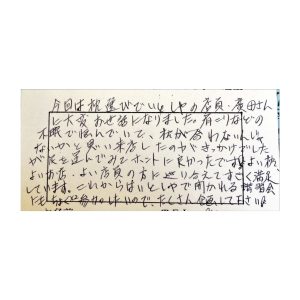 今回は枕選びでいとしやの店員・廣田さん
に大変お世話になりました。肩こりなどの
不眠で悩んでいて、枕が合わないんじゃ
ないかと思い来店したのがきっかけでした
が足を運んでみてホントに良かったです。よい枕
よいお店・よい店員の方に巡り合えてすごく満足
しています。これからはいとしやで開かれる講習会
にもぜひ参加したいので、たくさん企画して下さいね